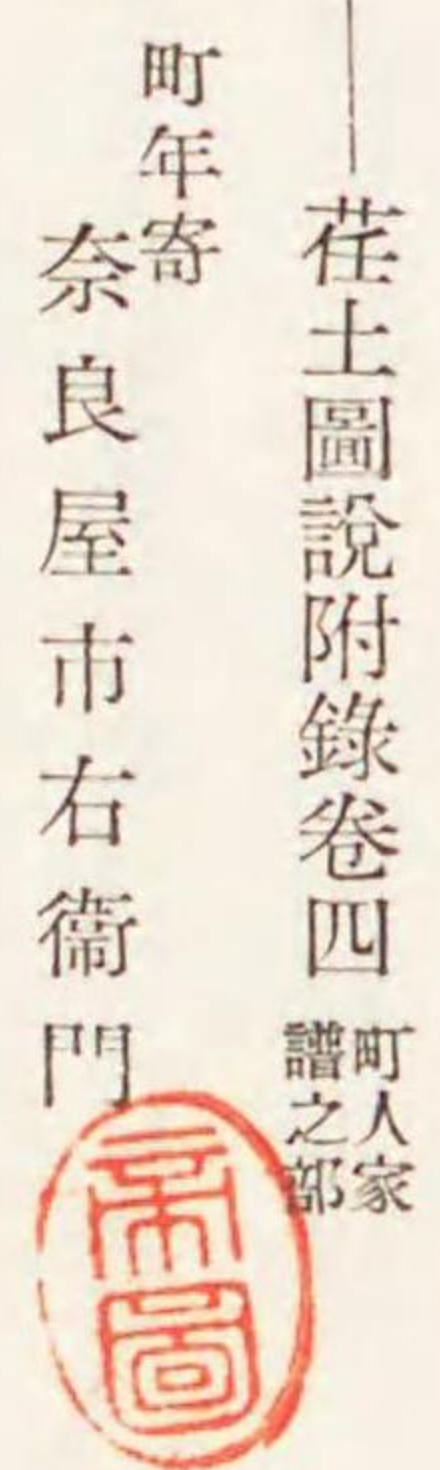 荏土圖説附錄卷四
町人家
譜之部
町年寄
奈良屋市右衞門
帝圖